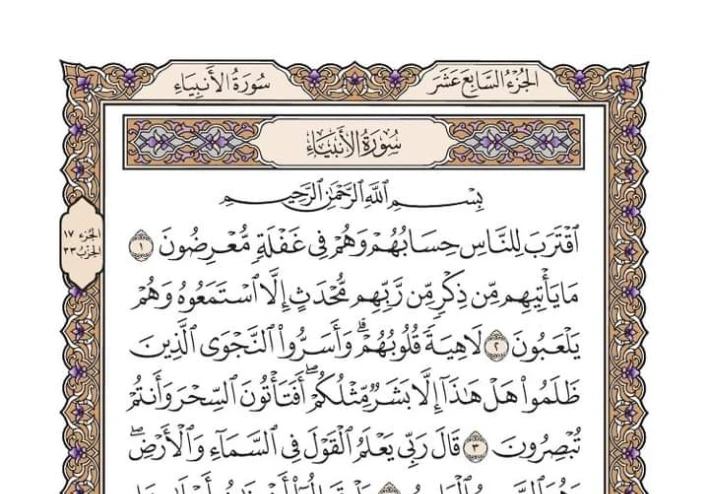 الجزء السابع عشر
سورة الأنبياء
سُورَةُ الأَنبِيَاءِ
بِسْمِ اللَّهِ الرَّحْمَٰنِ الرَّحِيمِ
ٱقْتَرَبَ لِلنَّاسِ حِسَابُهُمْ وَهُمْ فِى غَفْلَةٍ مُّعْرِضُونَ ١
مَا يَأْتِيهِم مِّن ذِكْرٍ مِّن رَّبِّهِم مُّحْدَثٍ إِلَّا ٱسْتَمَعُوهُ وَهُمْ
يَلْعَبُونَ ٢ لَاهِيَةً قُلُوبُهُمْ ۗ وَأَسَرُّوا۟ ٱلنَّجْوَى ٱلَّذِينَ
ظَلَمُوا۟ هَلْ هَٰذَآ إِلَّا بَشَرٌ مِّثْلُكُمْ ۖ أَفَتَأْتُونَ ٱلسِّحْرَ وَأَنتُمْ
تُبْصِرُونَ ٣ قَالَ رَبِّى يَعْلَمُ ٱلْقَوْلَ فِى ٱلسَّمَآءِ وَٱلْأَرْضِ ۖ
الجزء ١٧
الحزب ٣٣